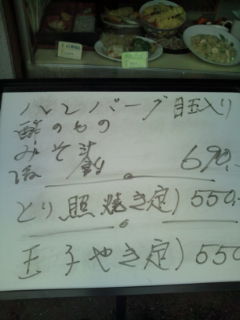 ハンバーグ 目玉入り
酢のもの
みそ汁
690.
とり照焼き定) 550.
玉子やき定) 550